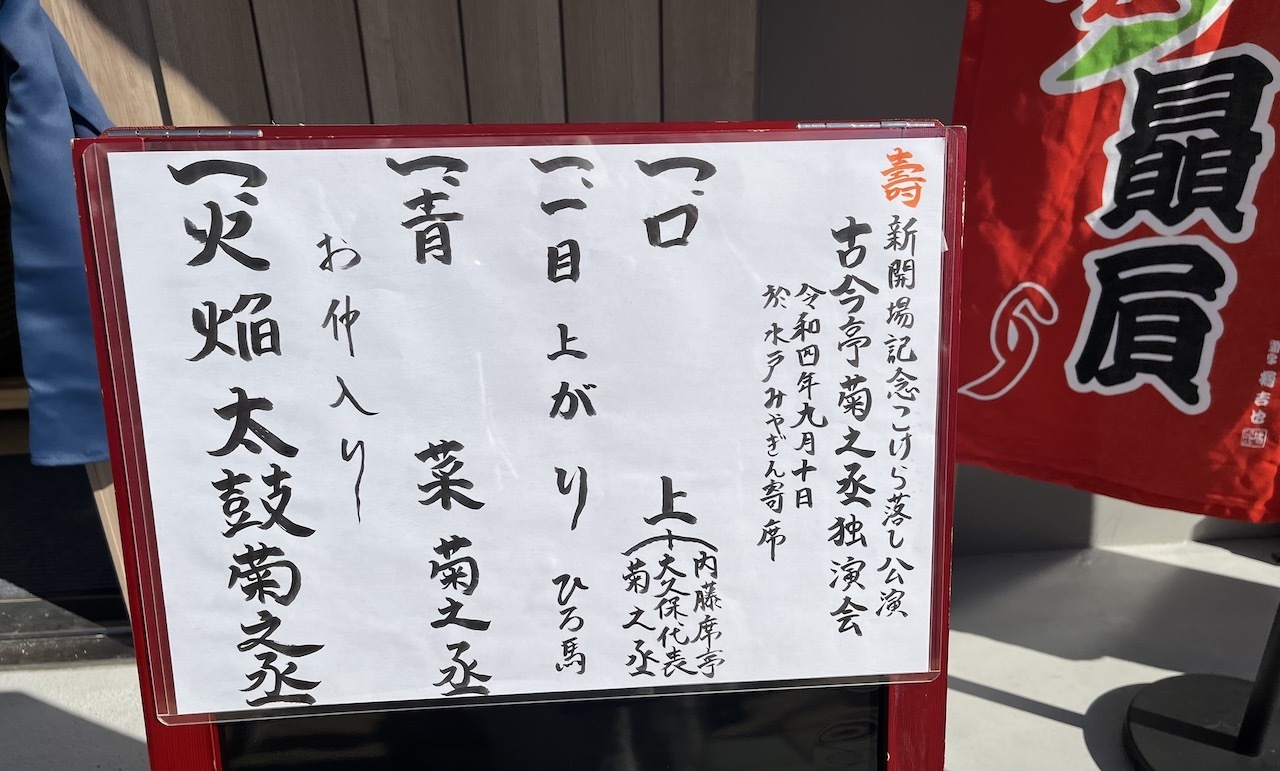 壽 新開場記念こけら落し公演
古今亭菊之丞独演会
令和四年九月十日
於 水戸みやぎん寄席
一、口 上
内藤席亭
大久保代表
菊之丞
一、二目上がり ひろ馬
一、青菜 菊之丞
お仲入り
一、火焔太鼓 菊之丞
贔屓